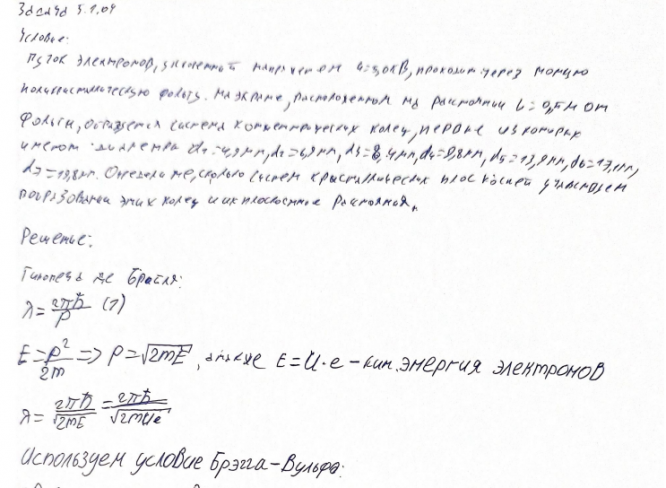 Задача 5.1.04
Условие:
Пучок электронов, ускоренный напряжением U=50кВ, проходит через тонкую
поликристаллическую фольгу. На экране, расположенном на расстоянии L=0,5м от
фольги, образуется система концентрических колец, первые из которых
имеют диаметры d₁=4,9мм, d₂=6,9мм, d₃=8,4мм, d₄=9,8мм, d₅=13,9мм,
d₇=19,8мм. Определите, сколько систем кристаллических плоскостей участвует
образовании этих колец и расстояния.
Решение:
Гипотеза де Бройля:
λ=2πħ/p (1)
E=p²/2m => p=√2mE, E=U·e - кин. энергия электронов
λ=2πħ/√2mE=2πħ/√2mUe
Используем условие Брэгга-Вульфа: